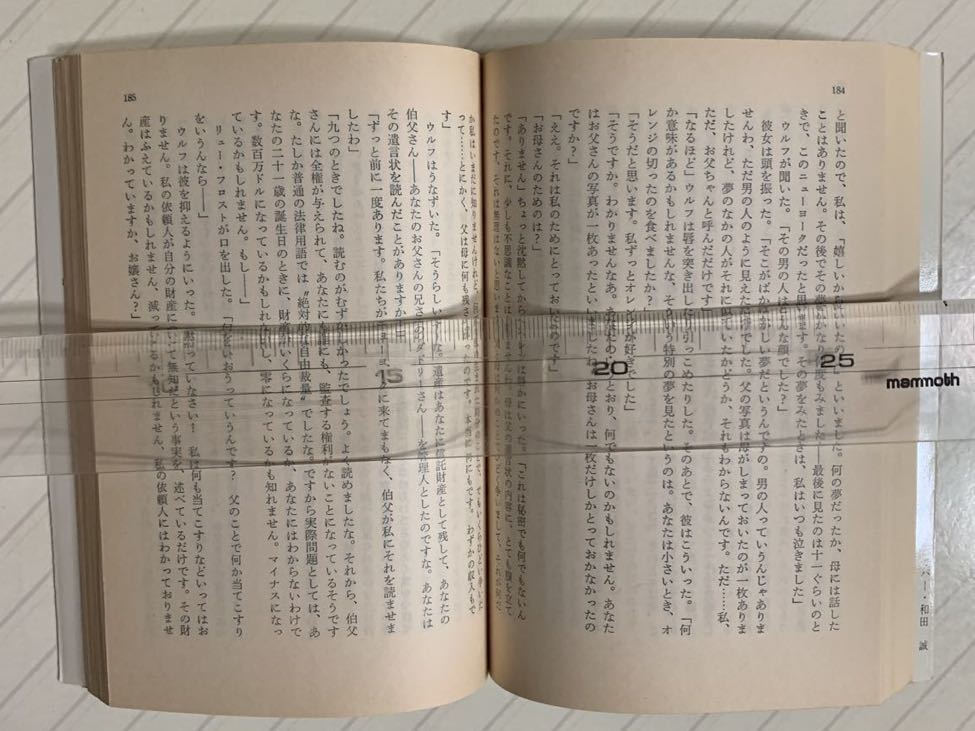 184
と聞いたので、私は、「嬉しいか
といいました。何の夢だったか、母には話した
ことはありません。その後でその夢
なり
度もみました——最後に見たのは十一ぐらいのと
きで、このニューヨークだったと思
ます。その夢をみたときは、私はいつも泣きました」
ウルフが聞いた。「その男の人は
んな顔でした?」
彼女は頭を振った。「そこがばか
かしい夢だというんですの。男の人っていうんじゃありま
せんわ、ただ男の人のように見えた
けでした。父の写真は母がしまっておいたのが一枚ありま
したけれど、夢のなかの人がそれに似ていたかどうか、それもわからないんです。ただ……私、
ただ、お父ちゃんと呼んだだけです」
「なるほど」ウルフは唇を突き出した
引っこめたりした。そのあとで、彼はこういった。「何
か意味があるかもしれませんな、そういう特別の夢を見たというのは。あなたは小さいとき、オ
レンジの切ったのを食べましたか?」
「そうだと思います。私ずっとオレンジが好きでした」
「そうですか。わかりませんなあ。あなたの
とおり、何でもないのかもしれません。あなた
はお父さんの写真が一枚あったといいましたね。お母さんは一枚だけしかとっておかなかったの
ですか?」
「ええ。それは私のためにとっておいた
のです」
「お母さんのためのは?」
「ありません」ちょっと沈黙してから、
は静かにいった。「これは秘密でも何でもないん
です。それに、少しも不思議なことは
ませんわ。母は父の遺言状の内容に、とても腹を立て
たのです。それは無理はないと思い
185
か私はいまだに知りませんけれど、
って……とにかく、父は母に何も残さ
ったのです。本当に何にもです。わずかの収入もで
す」
ウルフはうなずいた。「そうらしい
すな。遺産はあなたに信託財産として残して、あなたの
伯父さん——あなたのお父さんの兄さ
のダドリーさん——を管理人としたのですな。あなたは
その遺言状を読んだことがありますか
「ずっと前に一度あります。私たちが
クに来てまもなく、伯父が私にそれを読ませま
したわ」
「九つのときでしたね。読むのがむずか
かったでしょう。よく読めましたな。それから、伯父
さんには全権が与えられて、あなたにも
にも、監査する権利
ないことになっているそうです
な。たしか普通の法律用語では〝絶対的な自由裁量〟でしたな。ですから実際問題としては、あ
なたの二十一歳の誕生日のときに、財産
いくらになっているか、あなたにはわからないわけで
す。数百万ドルになっているかもしれ
し、零になっているかも知れません。マイナスになっ
ているかもしれません。もし——」
リュー・フロストが口を出した。「何
いおうっていうんです? 父のことで何か当てこすり
をいうんなら——」
ウルフは彼を抑えるようにいった。「黙っていなさい! 私は何も当てこすりなどいってはお
りません。私の依頼人が自分の財産に
いて無知だという事実を、述べているだけです。その財
産はふえているかもしれません、減っているかもしれません、私の依頼人にはわかっておりませ
ん。わかっていますか、お嬢さん?」
15
20
25
mammoth
・和田 誠